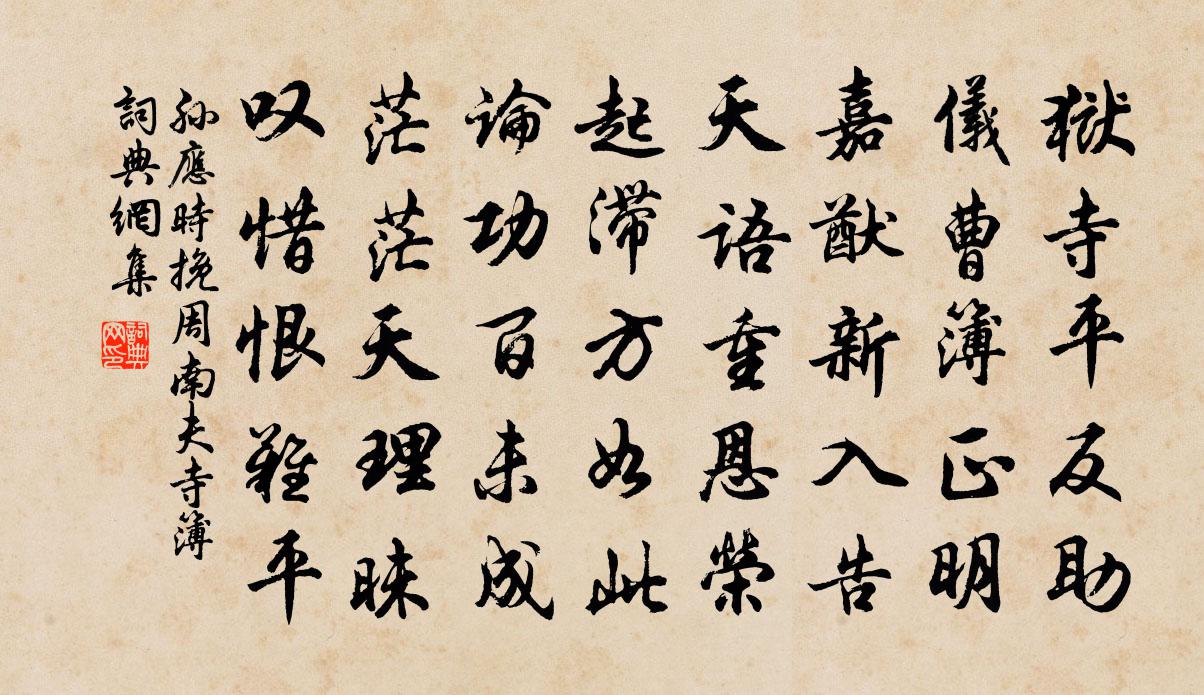 獄寺平反助
儀曹簿正明
嘉猷新入告
天语重恩榮
起滞方如此
論功百未成
茫茫天理昧
叹惜恨難平
孙應時挽周南夫寺簿
詞典網集
詞典网印